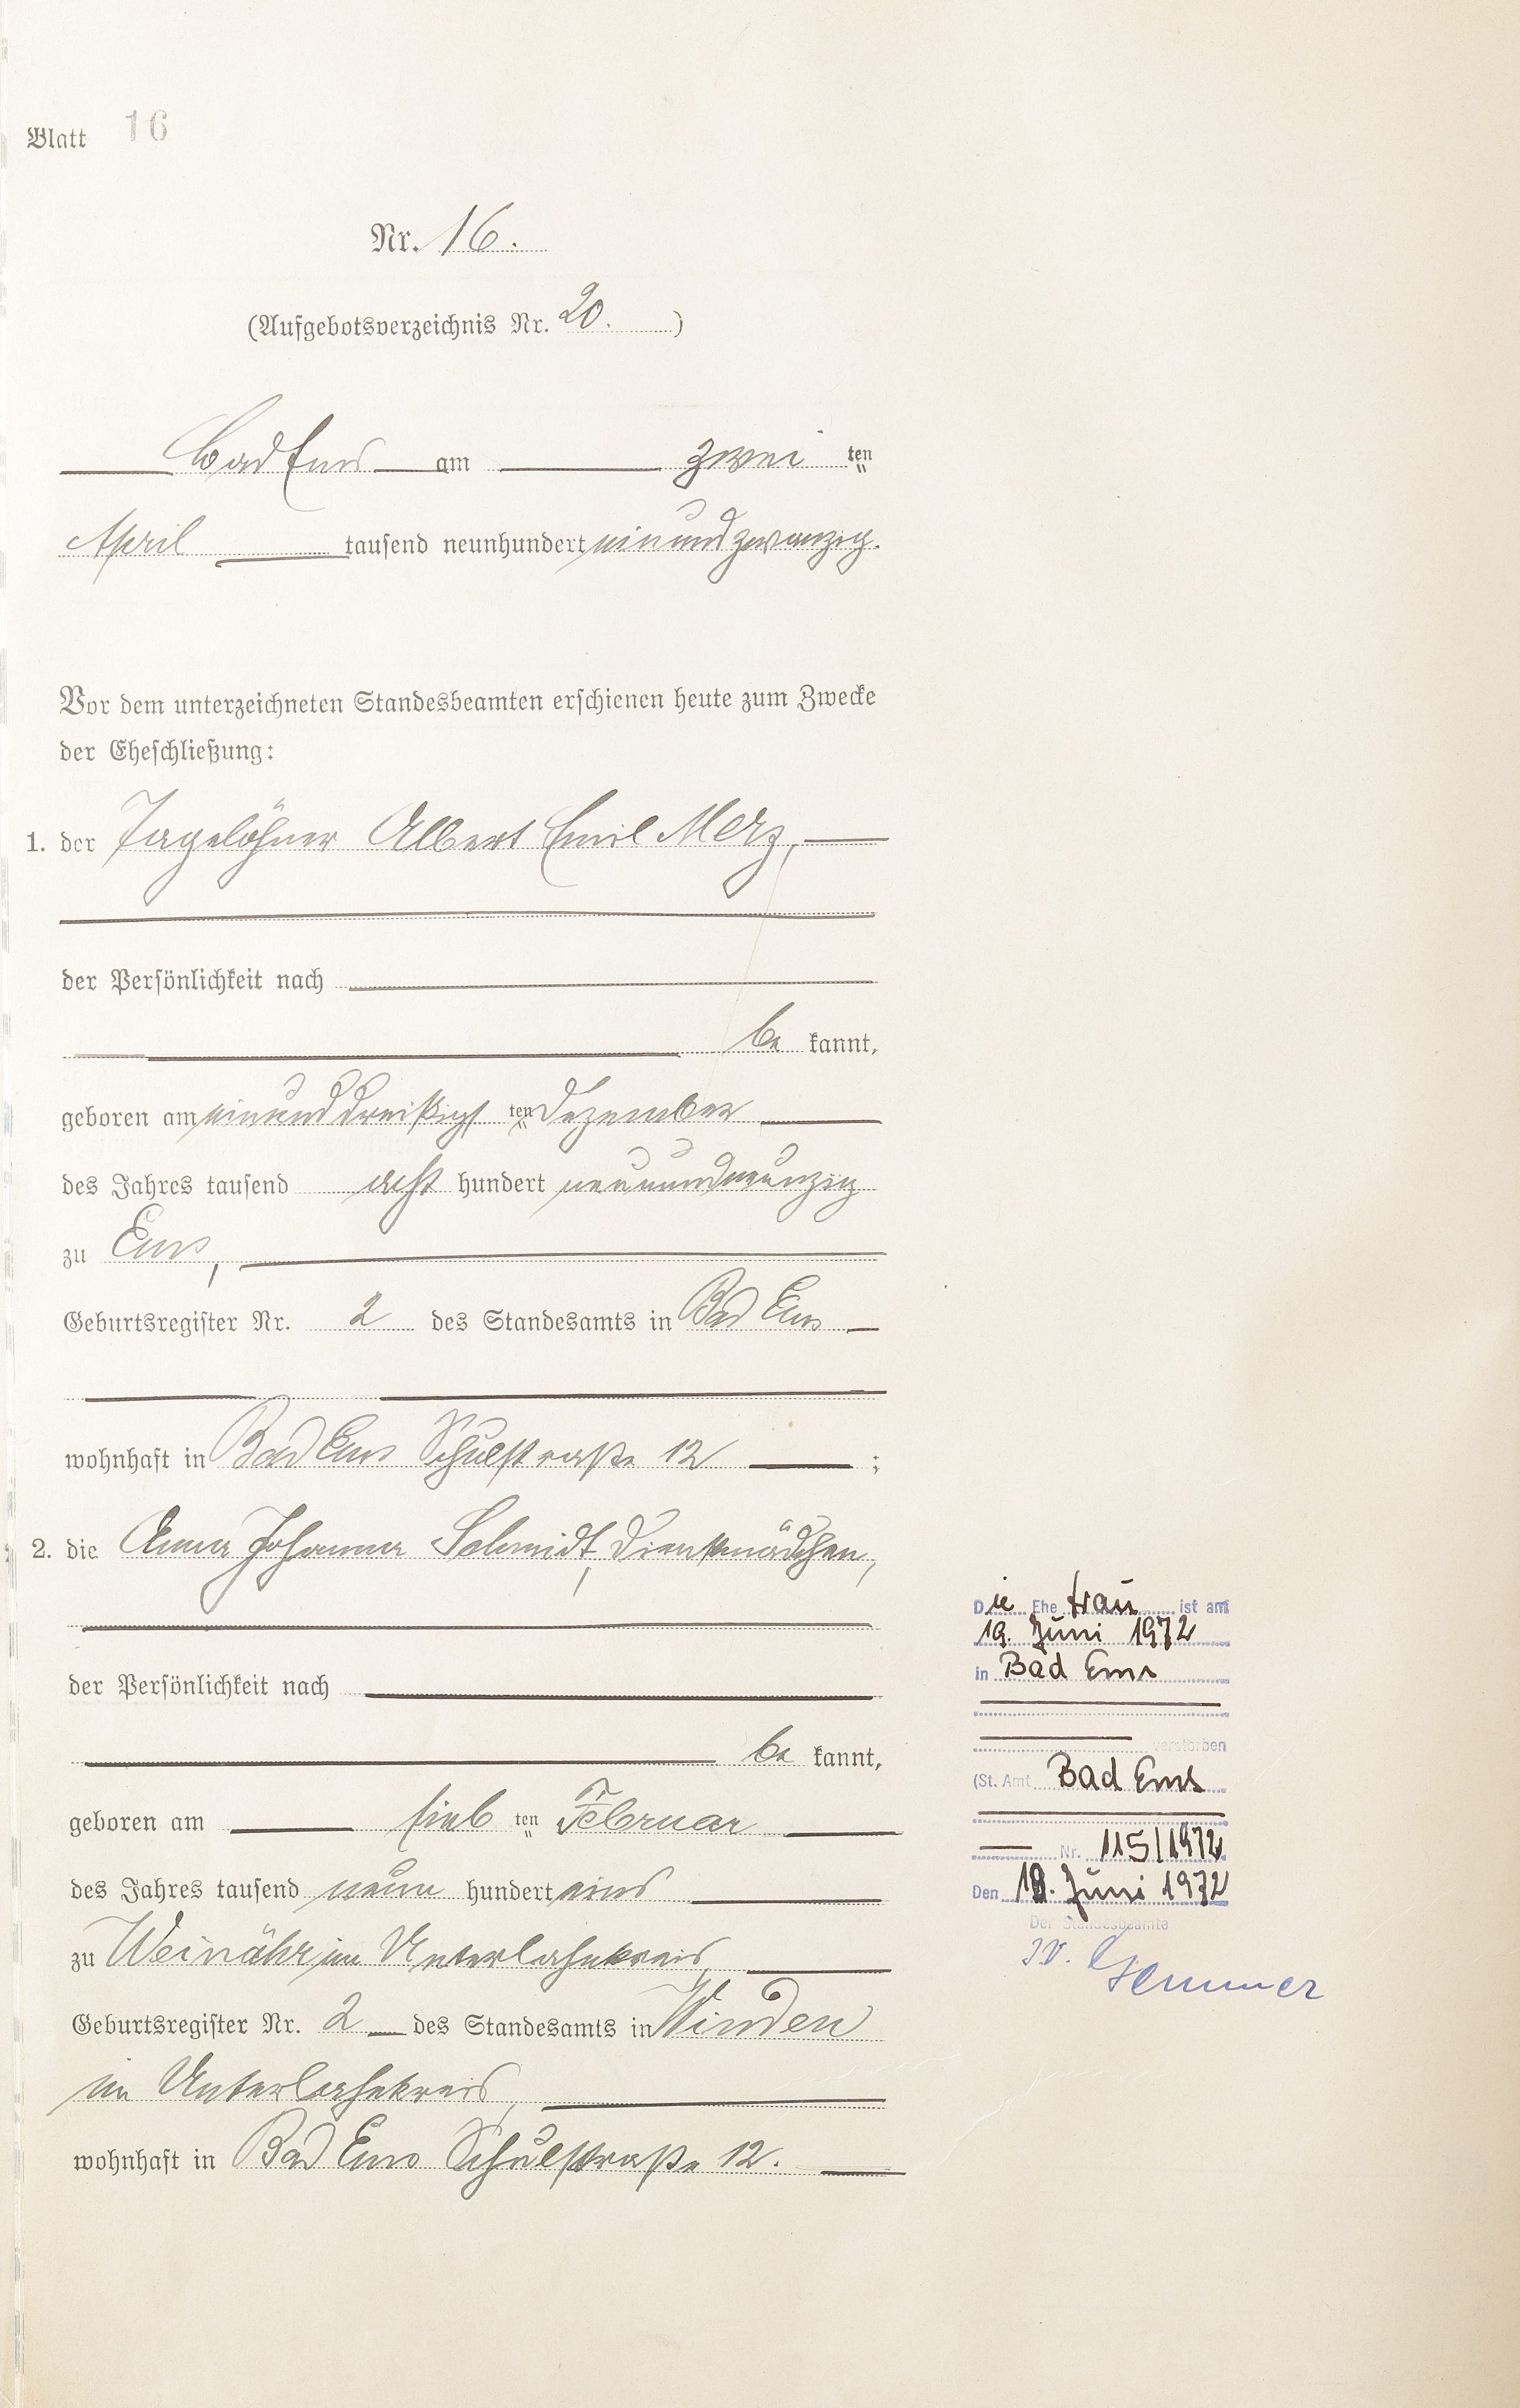 Blatt 16
Nr. 16.
(Aufgebotsverzeichnis Nr. 20.)
Bad Ems am zwei ten
April tausend neunhundert einundzwanzig.
Vor dem unterzeichneten Standesbeamten erschienen heute zum Zwecke
der Eheschließung:
1. der Tagelöhner Albert Emil Merz,
der Persönlichkeit nach
be kannt,
geboren am einunddreißigs ten Dezember
des Jahres tausend acht hundert neunundneunzig
zu Ems,
Geburtsregister Nr. 2 des Standesamts in Bad Ems
wohnhaft in Bad Ems Schulstraße 12 ;
2. die Anna Johanna Schmidt, Dienstmädchen,
der Persönlichkeit nach
be kannt,
geboren am sieb ten Februar
des Jahres tausend neun hundert eins
zu Weinähr im Unterlahnkreis,
Geburtsregister Nr. 2 des Standesamts in Winden
im Unterlahnkreis,
wohnhaft in Bad Ems Schulstraße 12.
Die Ehe frau ist am
19. Juni 1972
in Bad Ems
verstorben
(St. Amt Bad Ems
Nr. 115/1972
Den 19. Juni 1972
Der Standesbeamte
I.V.